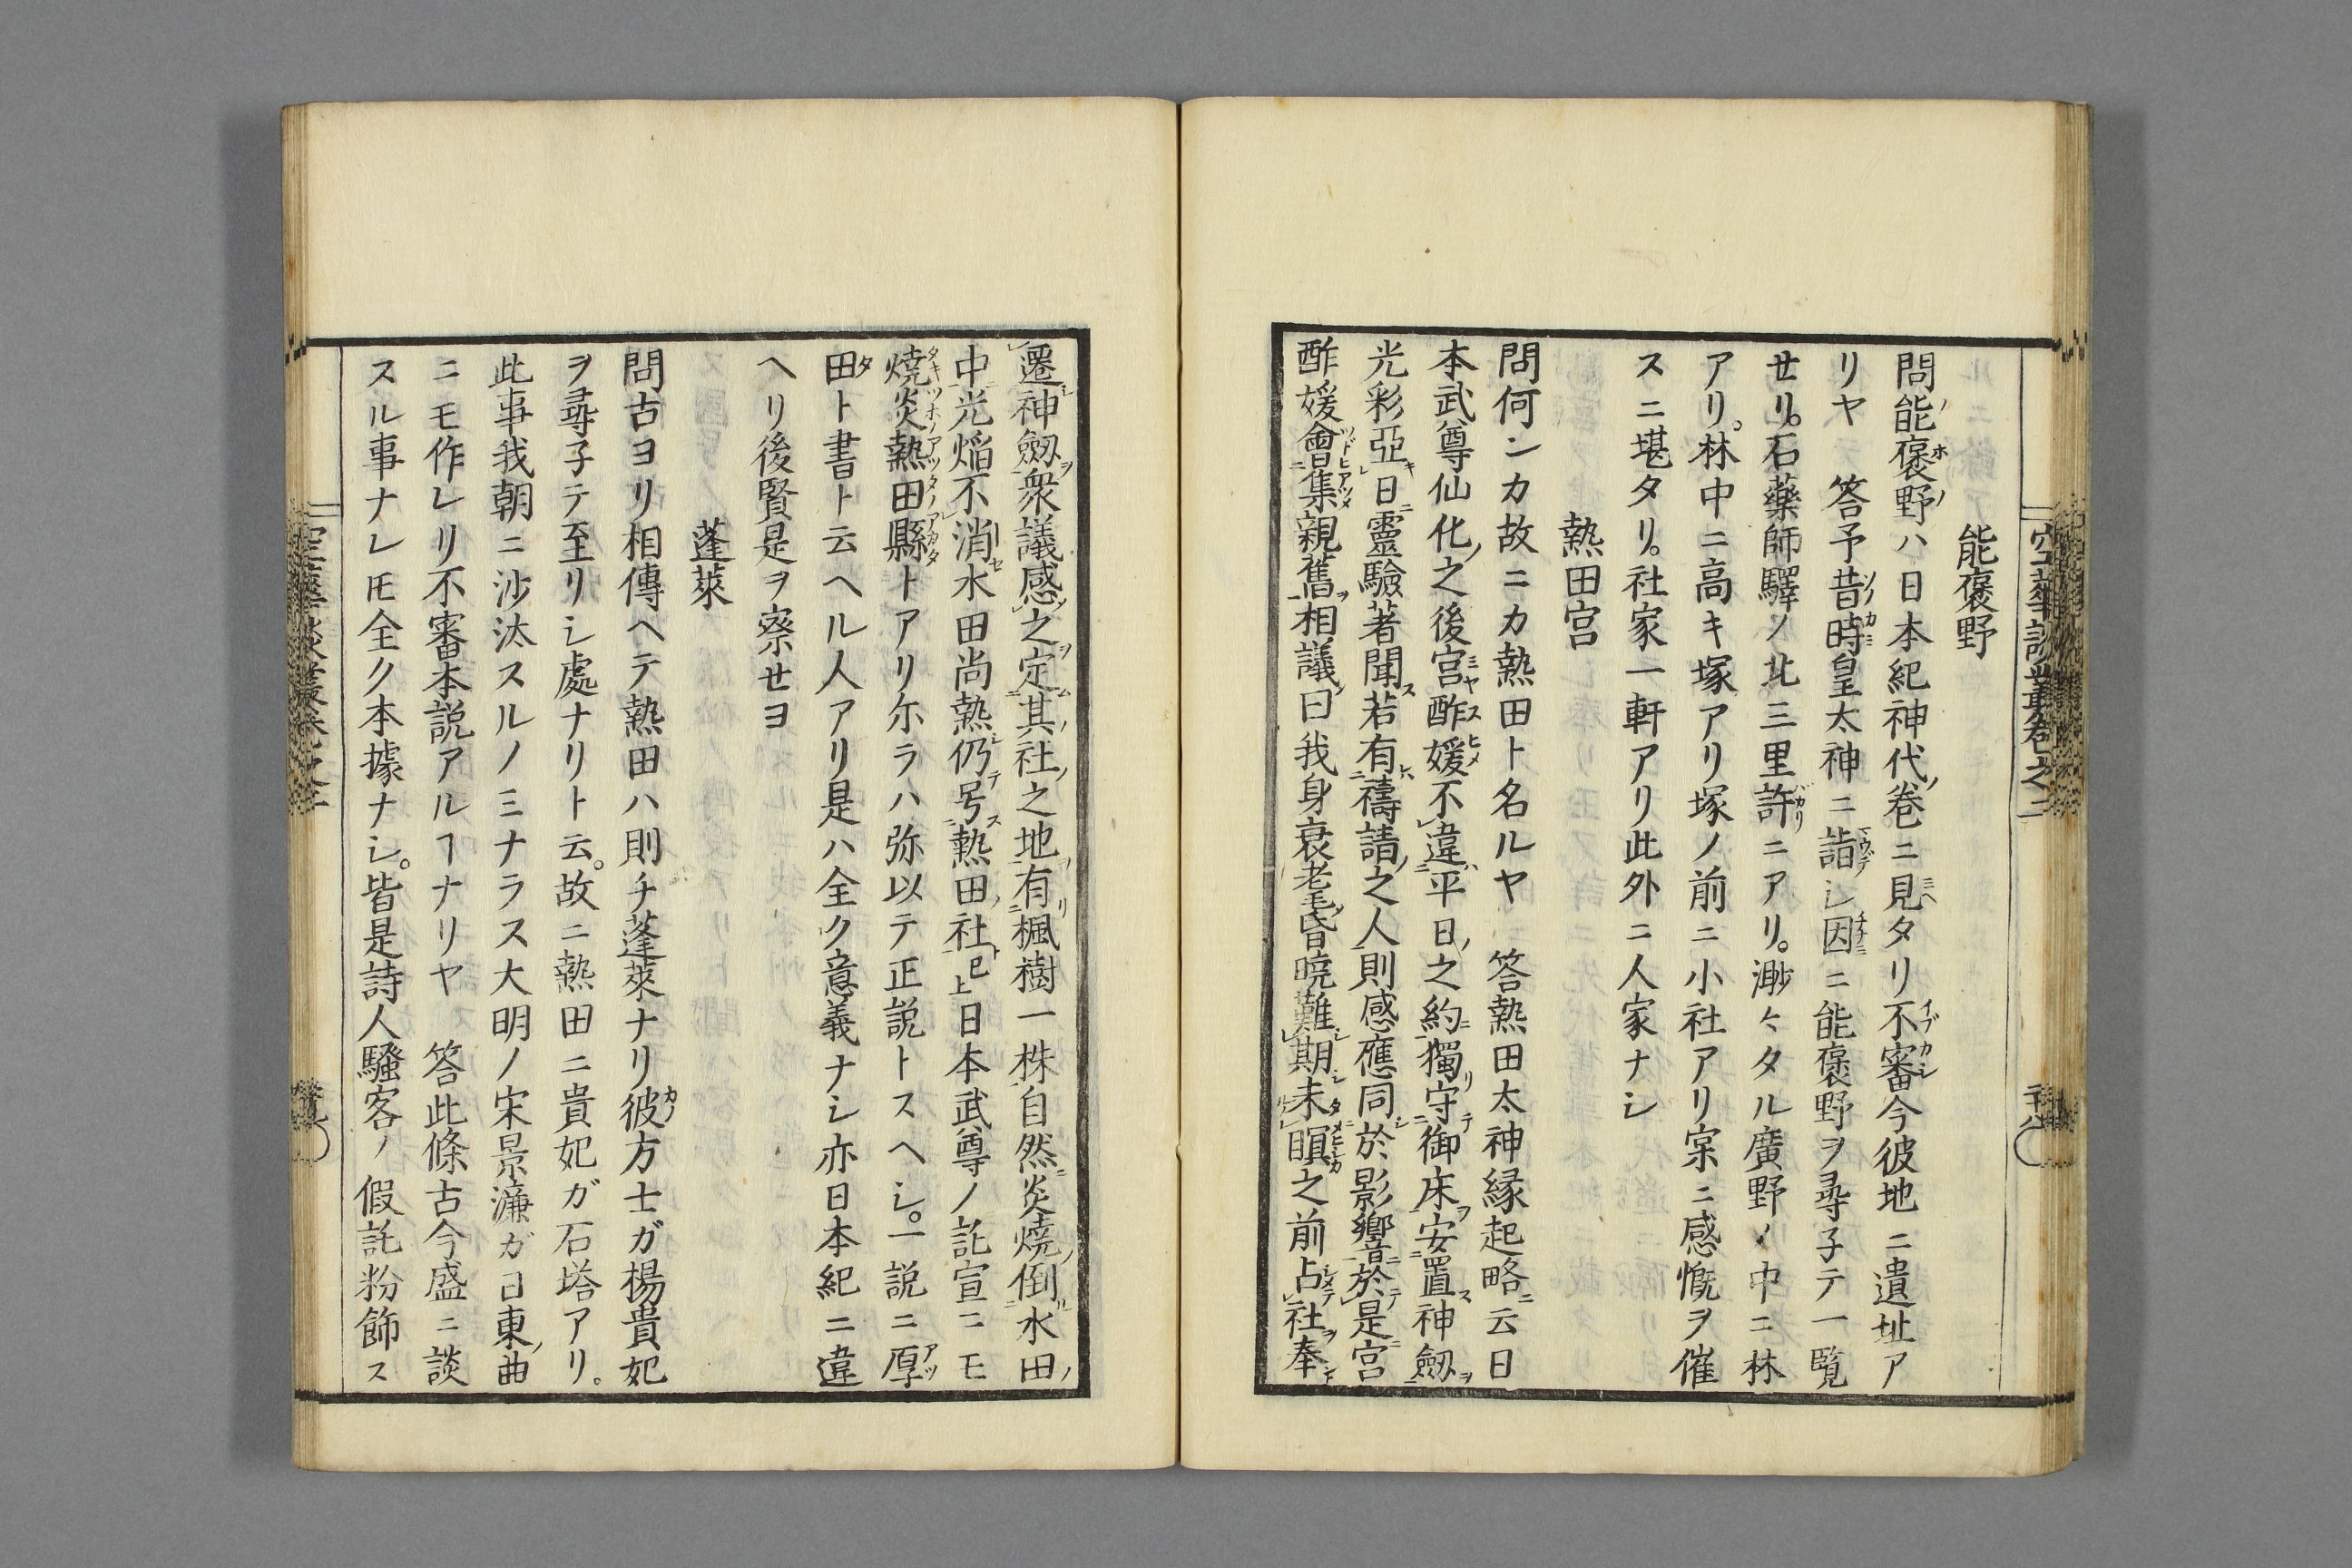 能褒野
問能褒野ハ日本紀神代ノ巻ニ見タリ不審今彼地ニ遺址ア
リヤ 答予昔時皇太神ニ詣シ因ニ能褒野ヲ尋子テ一覧
セリ。石藥師驛ノ北三里許ニアリ。渺々タル廣野ノ中ニ林
アリ。林中ニ高キ塚アリ塚ノ前ニ小社アリ寀ニ感慨ヲ催
スニ堪タリ。社家一軒アリ此外ニ人家ナシ
熱田宮
問何ンカ故ニカ熱田ト名ルヤ 答熱田太神縁起略云日
本武尊仙化之後宮酢媛不違平日之約獨守御床安置神劔
光彩亞日靈驗著聞若有禱請之人則感應同於影響於是宮
酢媛會集親舊相議曰我身衰耄昏暁難期未瞑之前占社奉
遷神劔衆議感之定其社之地有楓樹一株自然炎燒倒水田
中光焔不消水田尚熱仍号熱田社已上日本武尊ノ託宣ニモ
燒炎熱田縣トアリ尓ラハ弥以テ正説トスヘシ。一説ニ厚
田ト書ト云ヘル人アリ是ハ全ク意義ナシ亦日本紀ニ違
ヘリ後賢是ヲ察セヨ
蓬萊
問古ヨリ相傳ヘテ熱田ハ則チ蓬萊ナリ彼方士ガ楊貴妃
ヲ尋子テ至リシ處ナリト云。故ニ熱田ニ貴妃ガ石塔アリ。
此事我朝ニ沙汰スルノミナラス大明ノ宋景濂ガ日東ノ曲
ニモ作レリ不審本説アルヿナリヤ 答此條古今盛ニ談
スル事ナレ𪜈全ク本據ナシ。皆是詩人騷客ノ假託粉飾ス